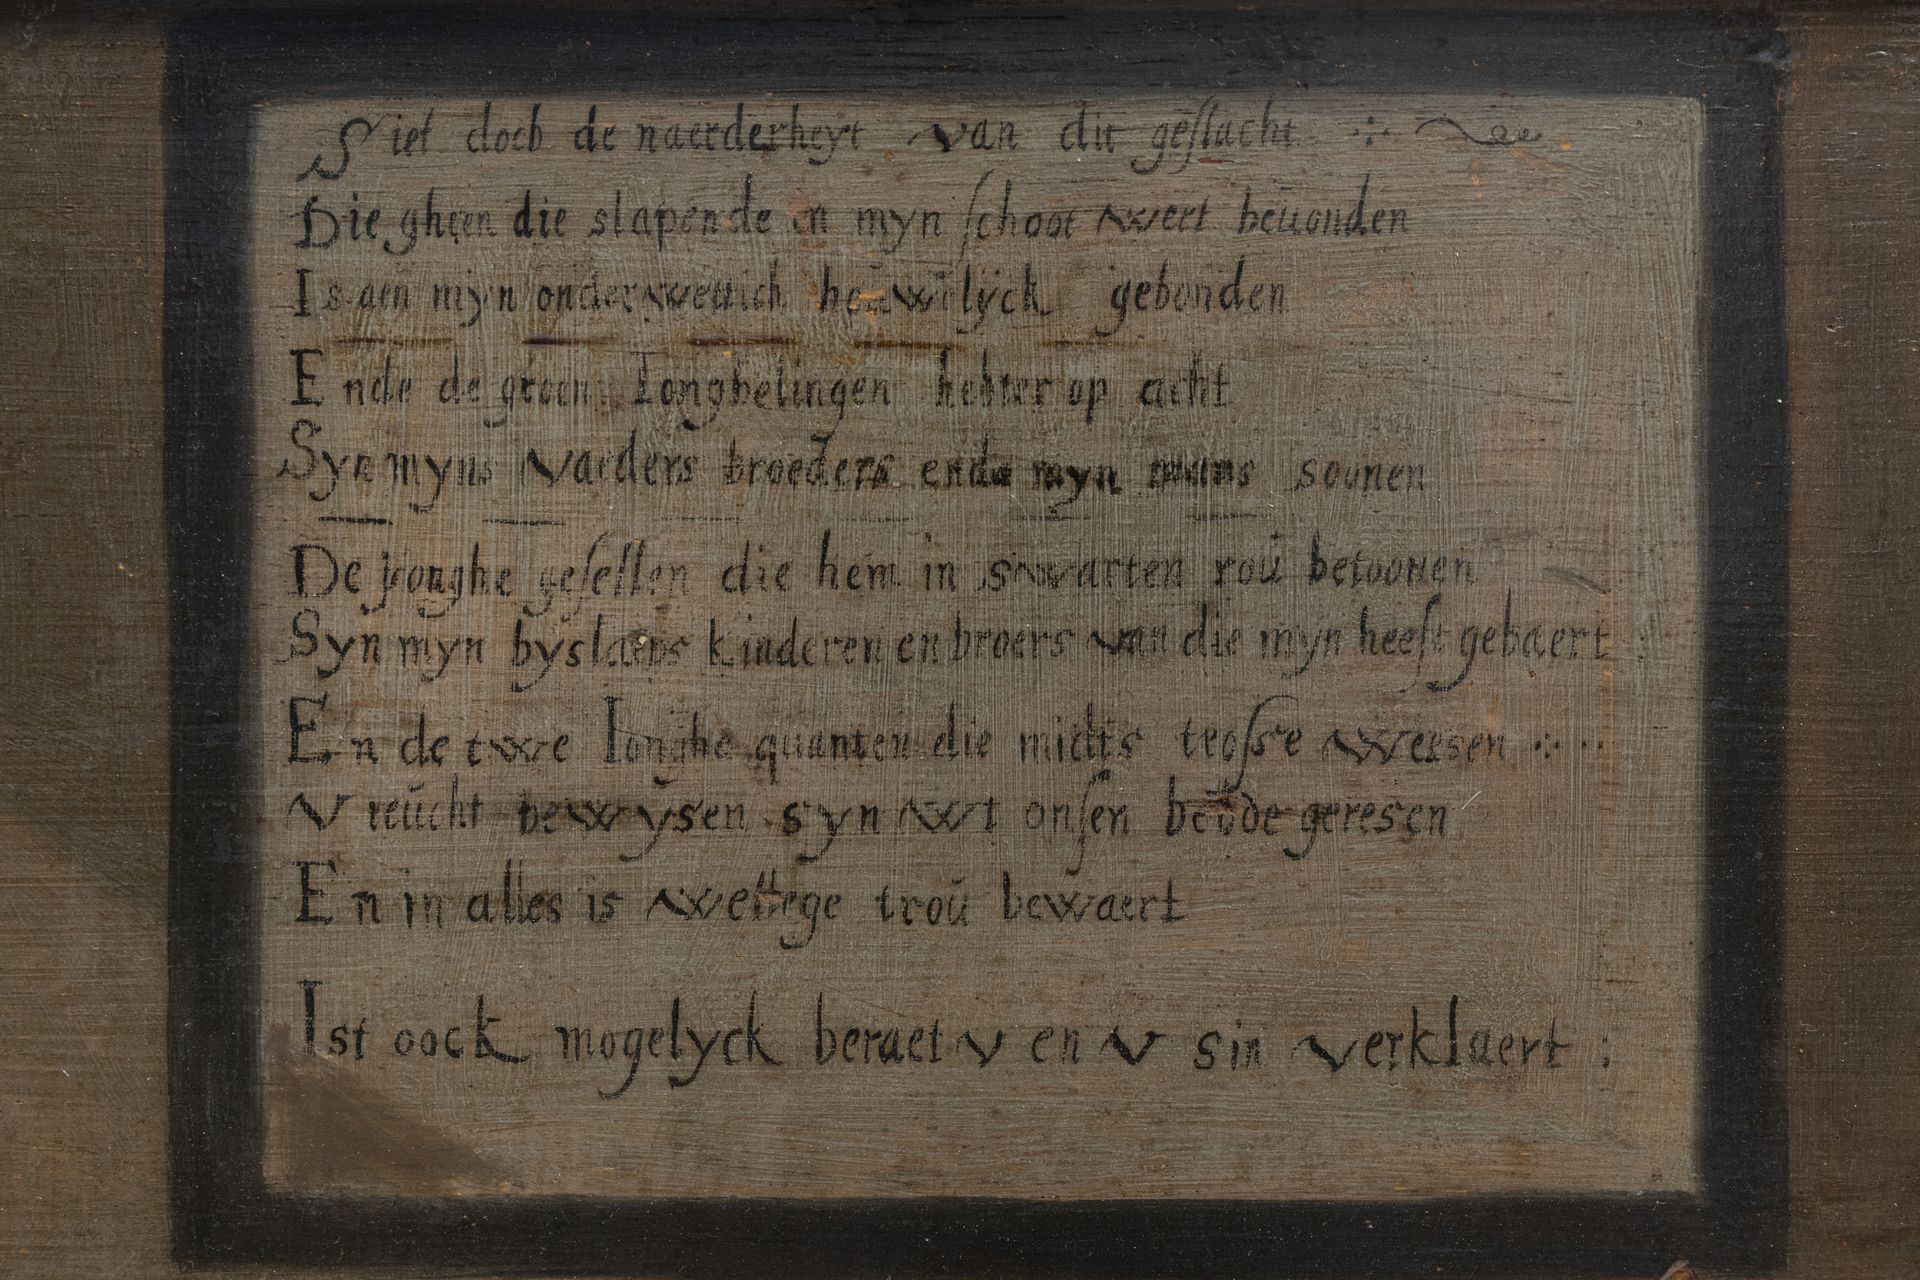 Siet doch de naerderheyt van dit geslacht
Die gheen die slapende in myn schoot wert bevonden
Is aen myn onder wettich heuwelyck gebonden
Ende de groen Ionghelingen hebter op acht
Syn myns vaeders broeders ende myn mans soonen
De jonghe gesellen die hem in swarten roŭ betoonen
Syn myn byslaeps kinderen en broers van die myn heeft gebaert :
En de twe Ionghe quanten die midts trosse wersen
vreŭcht bewÿsen syn wt onsen beŭde geresen
En in alles is wettege troŭ bewaert
Ist oock mogelyck beraet v en v sin verklaert :